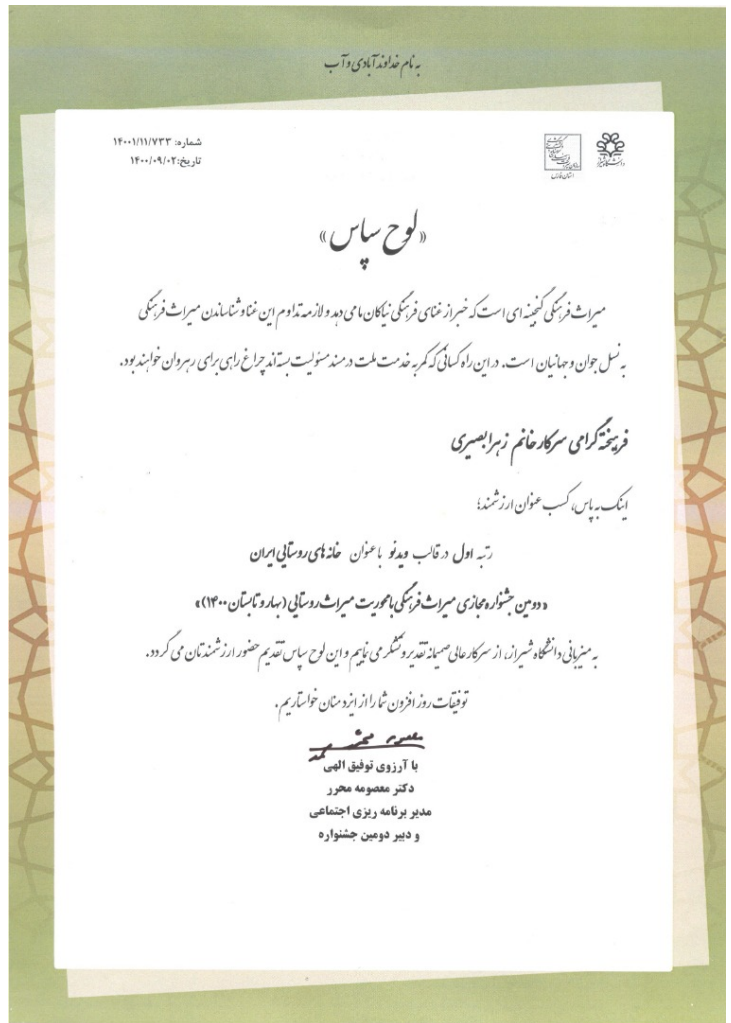 به نام خداوند آبادی و آب
شماره: ۱۴۰۰۱/۱۱/۷۳۳
تاریخ: ۱۴۰۰/۰۹/۰۲
دانشگاه شیراز
استان فارس
«لوح سپاس»
میراث فرهنگی گنجینه ای است که خبر از غنای فرهنگی نیاکان ما می دهد و لازمه تداوم این غنا و شناساندن میراث فرهنگی
به نسل جوان و جهانیان است. در این راه کسانی که کمر به خدمت ملت درمند مسئولیت بسته اند چراغ راهی برای رهروان خواهند بود.
فرهیخته گرامی سرکار خانم زهرا بصیری
اینک به پاس، کسب عنوان ارزشمند؛
رتبه اول در قالب ویدئو با عنوان خانه های روستایی ایران
«دومین جشنواره مجازی میراث فرهنگی با محوریت میراث روستایی (بهار و تابستان ۱۴۰۰)»
به میزبانی دانشگاه شیراز، از سرکار عالی صمیمانه تقدیر و تشکر می نماییم و این لوح سپاس تقدیم حضور ارزشمندتان می گردد.
توفیقات روز افزون شما را از ایزد منان خواستاریم.
با آرزوی توفیق الهی
دکتر معصومه محرر
مدیر برنامه ریزی اجتماعی
و دبیر دومین جشنواره